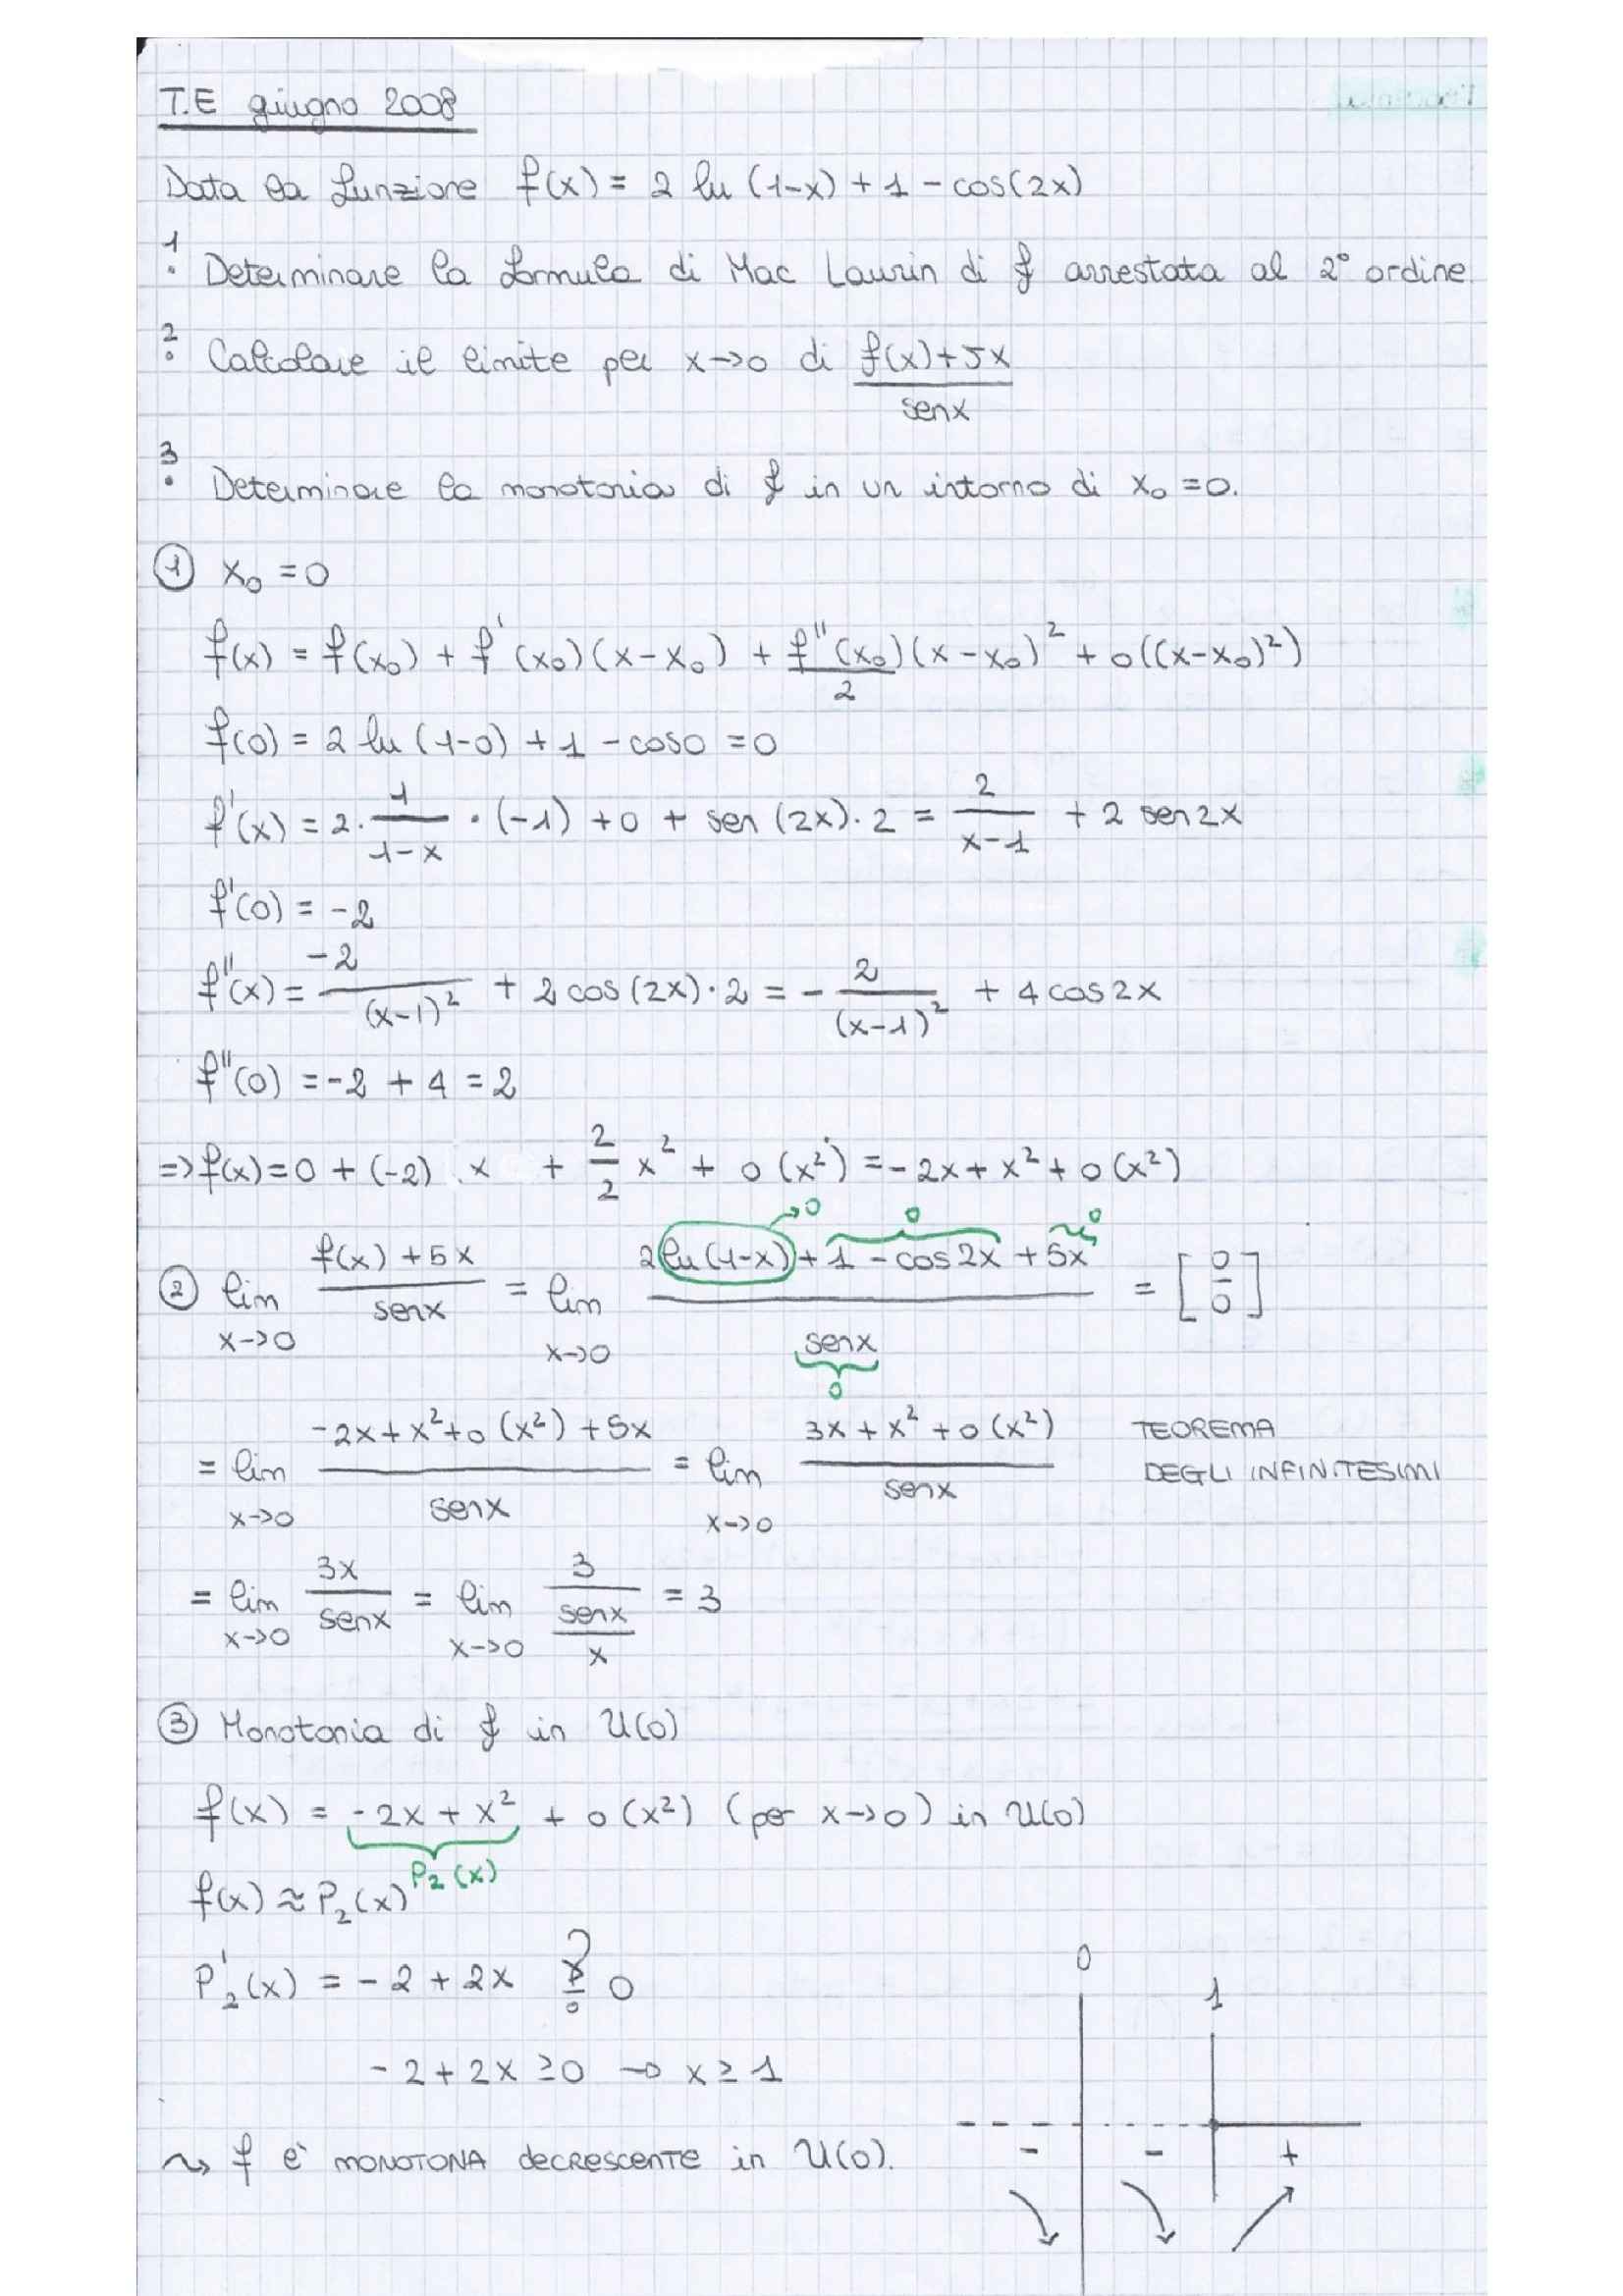 T.E giugno 2008
Data la funzione f(x) = 2 ln (1-x) + 1 - cos(2x)
1. Determinare la formula di Mac Laurin di f arrestata al 2° ordine.
2. Calcolare il limite per x→0 di (f(x)+5x)/senx
3. Determinare la monotonia di f in un intorno di x₀ = 0.
① x₀ = 0
f(x) = f(x₀) + f'(x₀)(x-x₀) + f''(x₀)/2 (x-x₀)² + o((x-x₀)²)
f(0) = 2 ln (1-0) + 1 - cos0 = 0
f'(x) = 2 · 1/(1-x) · (-1) + 0 + sen (2x) · 2 = 2/(x-1) + 2 sen2x
f'(0) = -2
f''(x) = -2/(x-1)² + 2 cos (2x) · 2 = - 2/(x-1)² + 4 cos2x
f''(0) = -2 + 4 = 2
=> f(x) = 0 + (-2) · x + 2/2 x² + o (x²) = -2x + x² + o (x²)
→0 0 0
② lim x→0 (f(x) + 5x)/senx = lim x→0 (2 ln (1-x) + 1 - cos2x + 5x)/senx = [0/0]
0
= lim x→0 (-2x + x² + o (x²) + 5x)/senx = lim x→0 (3x + x² + o (x²))/senx TEOREMA DEGLI INFINITESIMI
= lim x→0 3x/senx = lim x→0 3/(senx/x) = 3
③ Monotonia di f in U(0)
f(x) = -2x + x² + o (x²) (per x→0) in U(0)
P₂ (x)
f(x) ≈ P₂(x)
P'₂(x) = -2 + 2x ≥? 0
-2 + 2x ≥ 0 → x ≥ 1
⇝ f è MONOTONA decrescente in U(0).
0
1
- - +